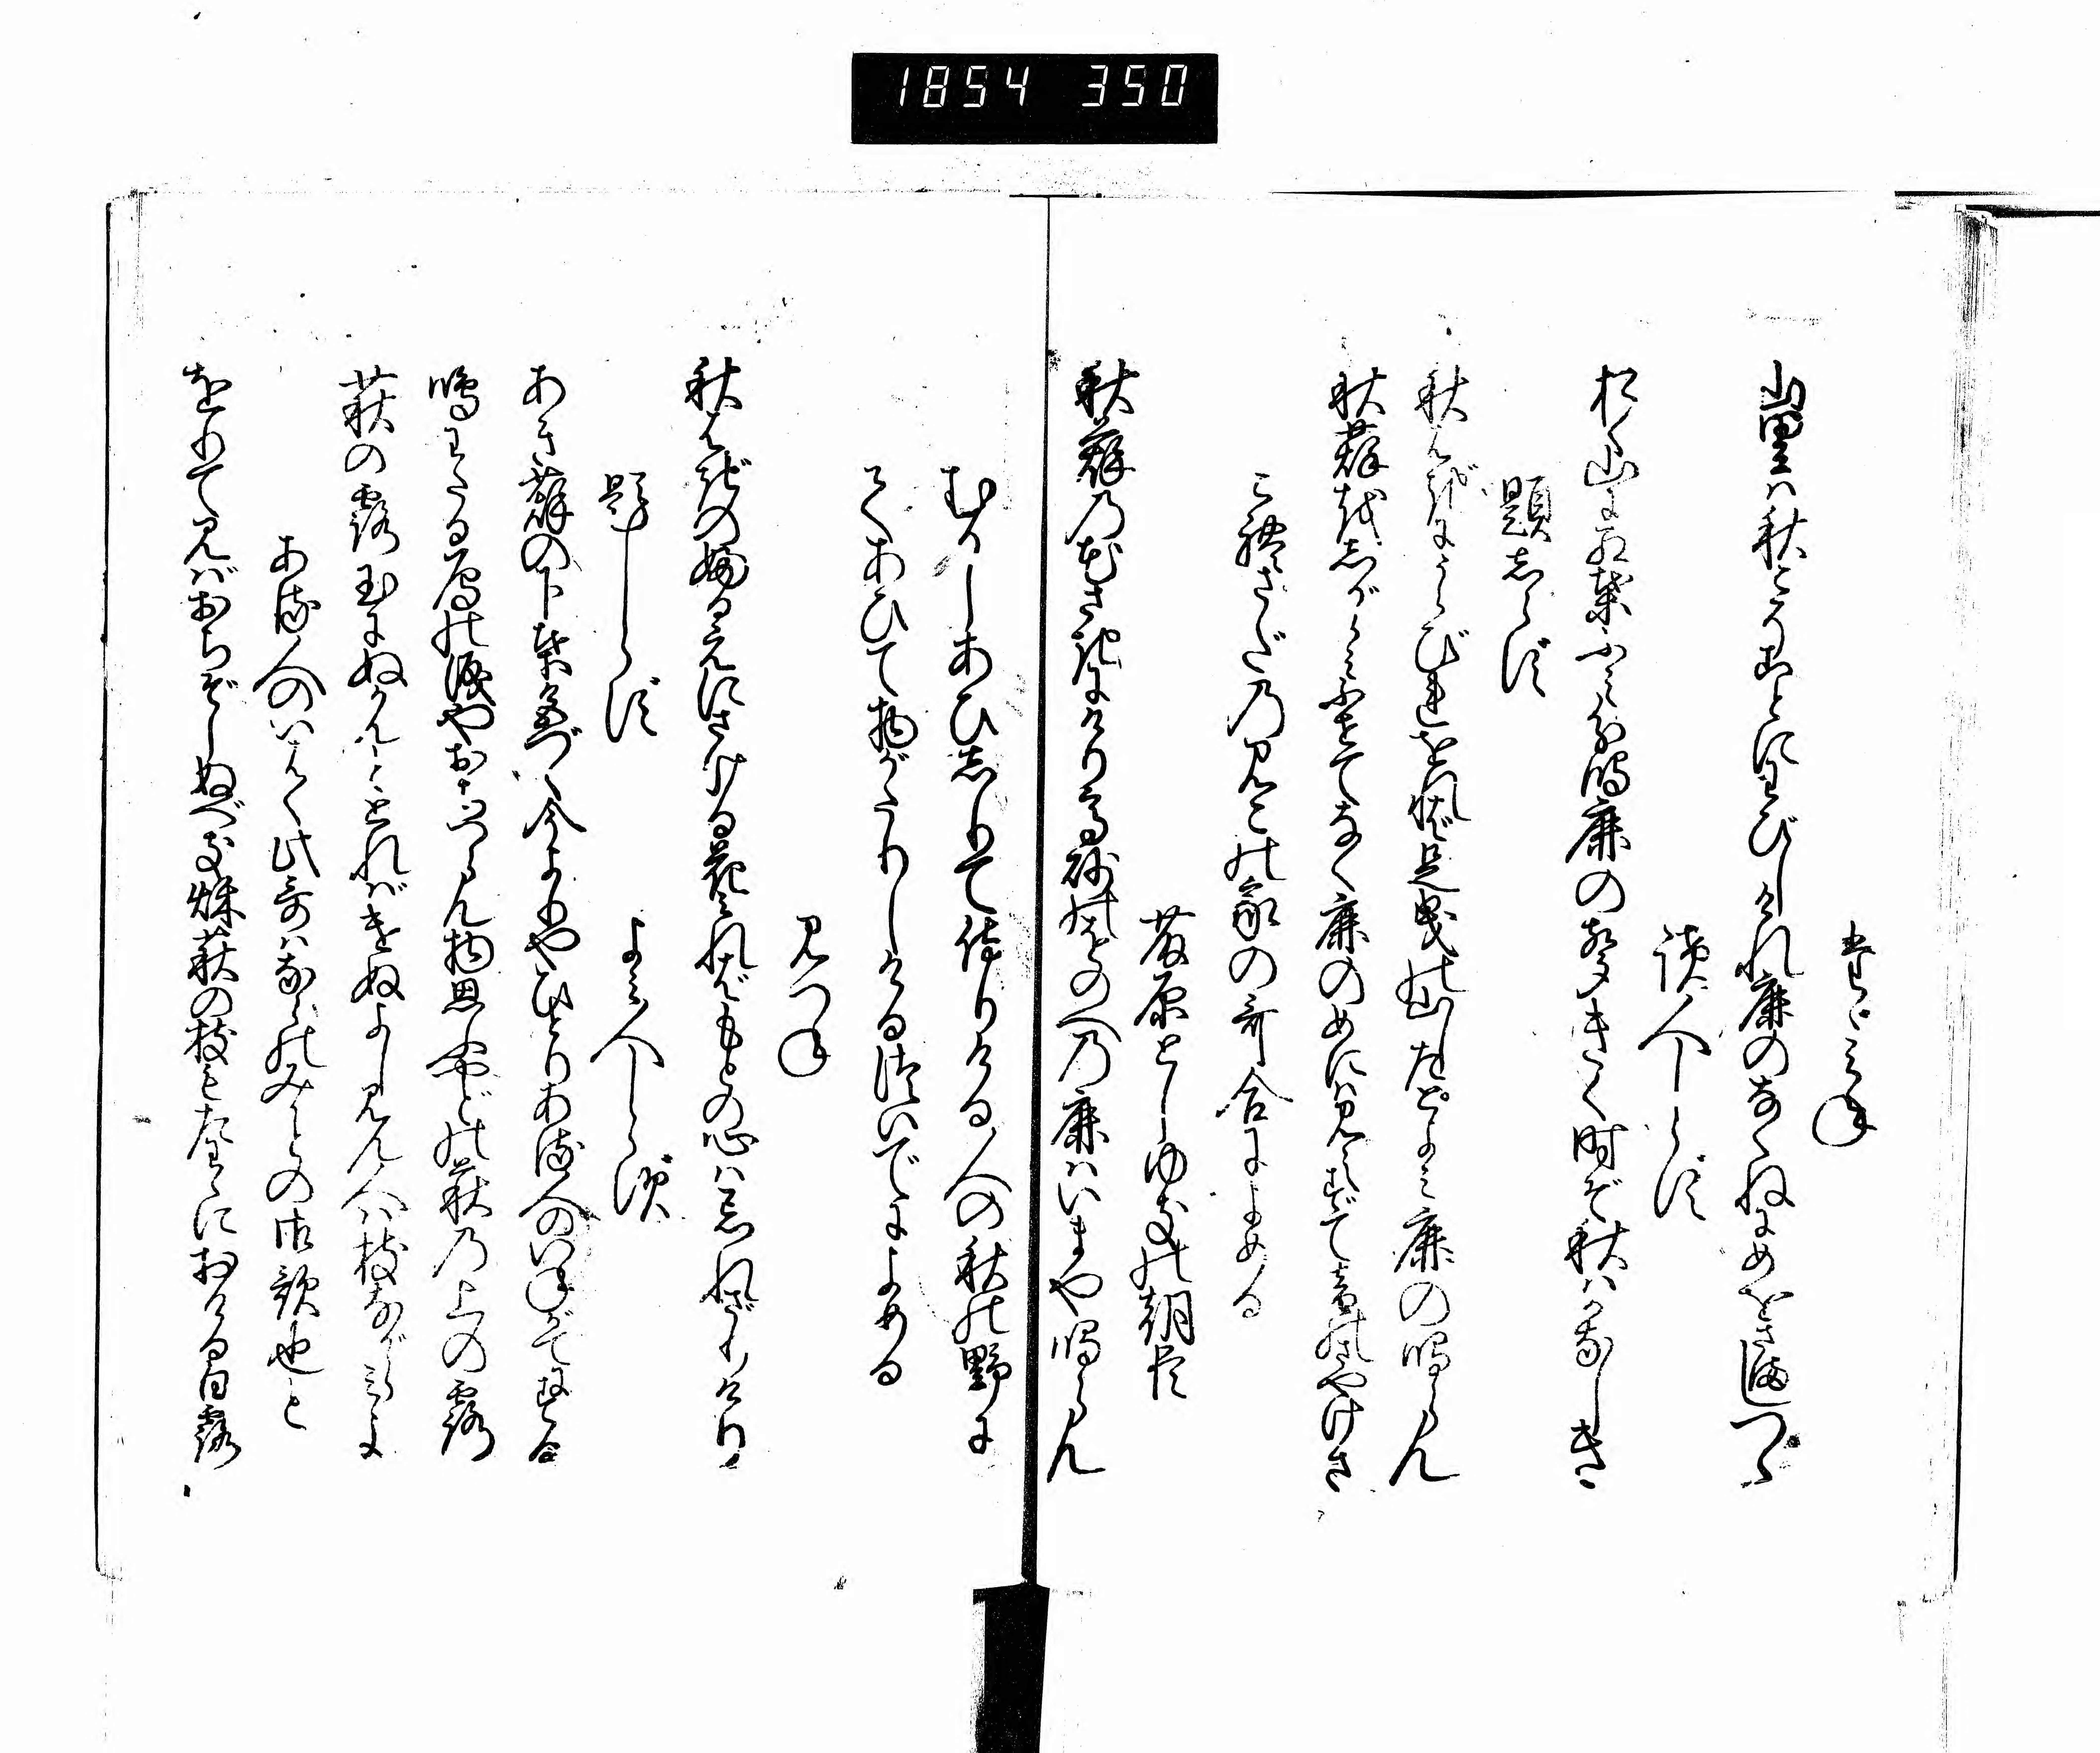 1854 350
たゞみね
山里は秋こそことにわびしけれ鹿のなくねにめをさましつゝ
読人しらず
おく山に紅葉ふみわけ鳴鹿の声きく時ぞ秋はかなしき
題しらず
秋はぎにうらびれをれば足曳の山したとよみ鹿の鳴らん
秋萩をしがらみふせてなく鹿のめには見えずて音のさやけさ
これさだのみこの家の哥合によめる
藤原としゆきの朝臣
秋萩の花さきにけり高砂のをのへの鹿はいまや鳴らん
むかしあひしりて侍りける人の秋の野に
てあひて物がたりしけるついでによめる
みつね
秋はぎの古えにさける花みればもとの心は忘れざりけり
題しらず
よみ人しらず
あき萩の下葉色づく今よりやひとりある人のいねがてにする
鳴わたる雁の涙やおちつらん物思ふやどの萩の上の露
萩の露玉にぬかんととればけぬよし見ん人は枝ながらみよ
ある人のいはく此哥はならのみかどの御歌也と
をりて見ばおちぞしぬべき秋萩の枝もたわゝにおける白露